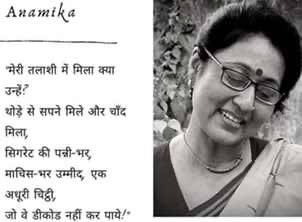 Anamika
"मेरी तलाशी में मिला क्या
उन्हें?
थोड़े से सपने मिले और चाँद
मिला,
सिगरेट की पन्नी-भर,
माचिस-भर उम्मीद, एक
अधूरी चिट्ठी,
जो वे डीकोड नहीं कर पाये!"